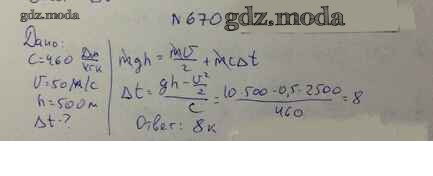 gdz.moda
№670 gdz.moda
Дано:
c=460 Дж/кг·К
v=50 м/с
h=500 м
Δt-?
mgh = mv/2 + mcΔt
Δt = (gh - v²/2)/c = (10·500-0,5·2500)/460 = 8
Ответ: 8к